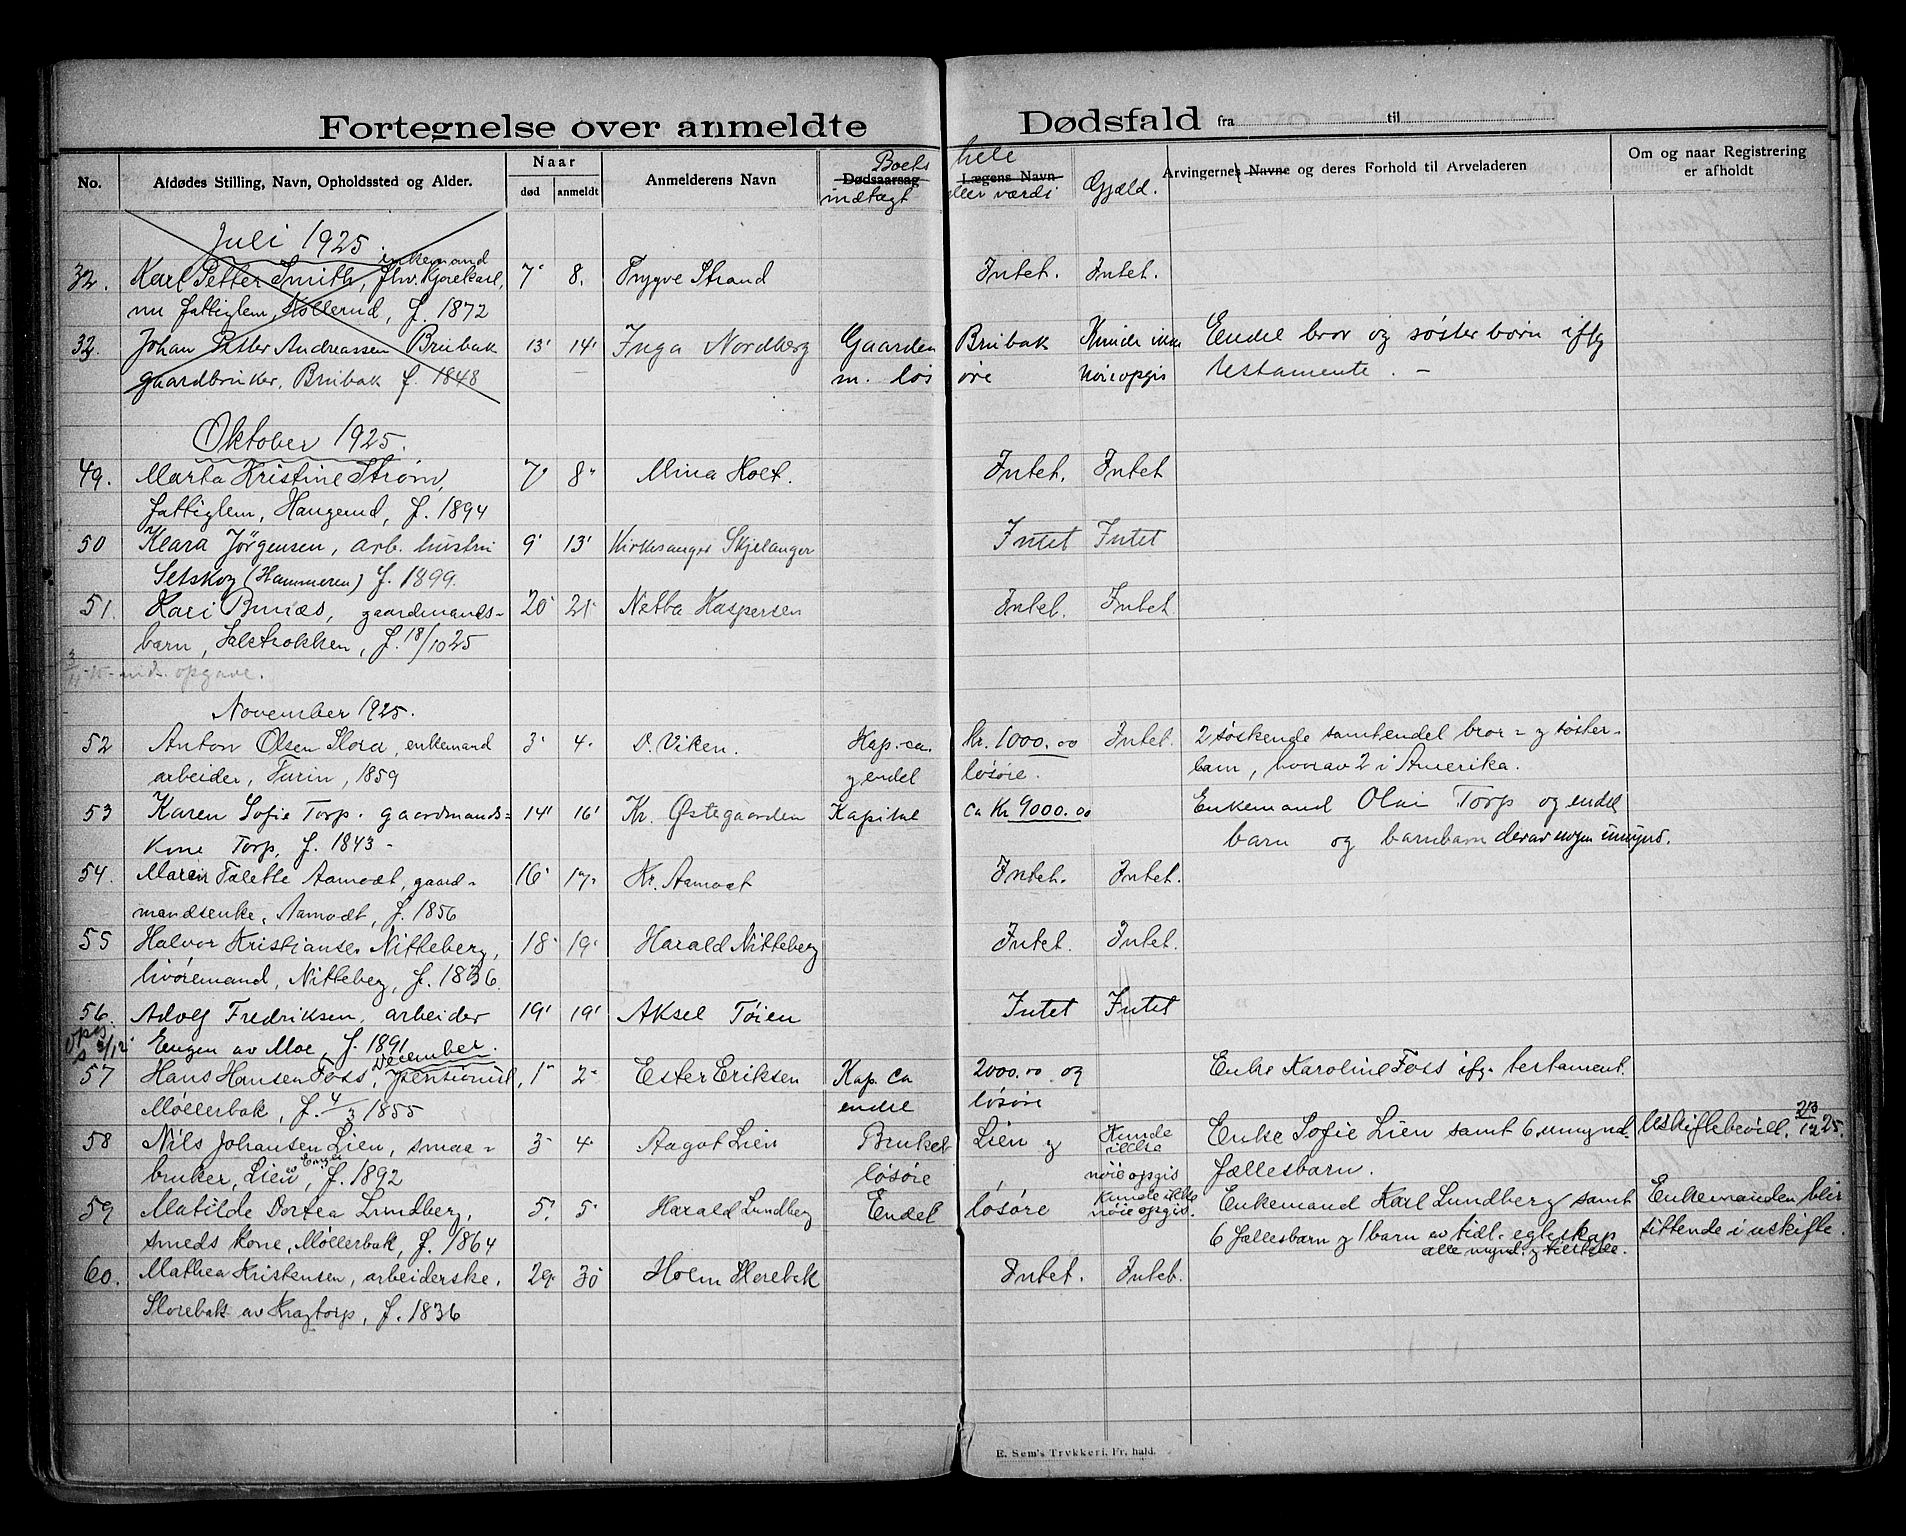 Fortegnelse over anmeldte Dødsfald fra til
No. Afdødes Stilling, Navn, Opholdssted og Alder. Naar død anmeldt Anmelderens Navn Dødsaarsag Lægens Navn Arvingernes Navne og deres Forhold til Arveladeren Om og naar Registrering er afholdt
Boets hele indtægt eller værdi Gjæld.
Juli 1925. enkemand
32. Karl Petter Smith, fhv. Kjørekarl, 7' 8. Trygve Strand Intet. Intet.
nu fattiglem, Møllerud, f. 1872
32. Johan Petter Andreassen Brubak 13' 14' Inga Nordberg Gaarden Brubak Kunde ikke Endel bror og søster børn iflg
gaardbruker, Brubak f. 1848 m. løs øre nøie opgis testamente. —
Oktober 1925.
49. Marta Kristine Strøm, 7' 8" Mina Holt. Intet. Intet
fattiglem, Haugerud, f. 1894
50 Klara Jørgensen, arb. hustru 9' 13' Kirkesanger Skjelanger Intet Intet
Setskog (Hammeren) f. 1899.
51. Kari Bunæs, gaardmands- 20' 21' Netta Kaspersen Intet. Intet
barn, f. 18/10 25
3/11 opgave.
November 1925.
52 Anton Olsen Slora, enkemand 3' 4. O. Viken. Kap. ca. kr. 1000.00 Intet. 2 søskende samt endel bror- og søster-
arbeider, Furin, 1859 og endel løsøre. barn, hvorav 2 i Amerika.
53 Karen Sofie Torp. gaardmands- 14' 16' Kr. Østegaarden Kapital ca Kr 9000.00 Enkemand Olai Torp og endel
kone Torp, f. 1843 - barn og barnbarn derav nogen umynd.
54. Maren Talette Aamodt, gaard- 16' 17- Kr. Aamodt Intet. Intet.
mandsenke, Aamodt, f. 1856
55 Halvor Kristiansen Nitteberg, 18' 19' Harald Nitteberg Intet. Intet.
livøremand, Nitteberg, f. 1836.
56. Adolf Fredriksen, arbeider 19' 19' Aksel Tøien Intet Intet
opg. s 3/12 Engen av Moe, f. 1891
December.
57 Hans Hansen Foss, pensionist, 1' 2- Ester Eriksen Kap. ca 2000.00 og Enke Karoline Foss ifg. testament.
Møllerbak, f. 4/3 1855 endel løsøre
58 Nils Johansen Lien, smaa- 3' 4. Aagot Lien Bruket Lien og Kunde ikke Enke Sofie Lien samt 6 umynd. Uskiftebevill. 23/12 25.
bruker, Lien av Enger, f. 1892 løsøre nøie opgis fællesbarn.
59 Matilde Dortea Lundberg, 5' 5' Harald Lundberg Endel løsøre Kunde ikke nøie opgis. Enkemand Karl Lundberg samt Enkemanden blir
smeds kone, Møllerbak, f. 1864 6 fællesbarn og 1 barn av tidl. egteskap sittende i uskifte.
alle mynd. og tilstede.
60. Mathea Kristensen, arbeiderske, 29' 30 Holm Slorebak Intet. Intet.
Slorebak av Kragtorp, f. 1836
E. Sem's Trykkeri, Fr. hald.